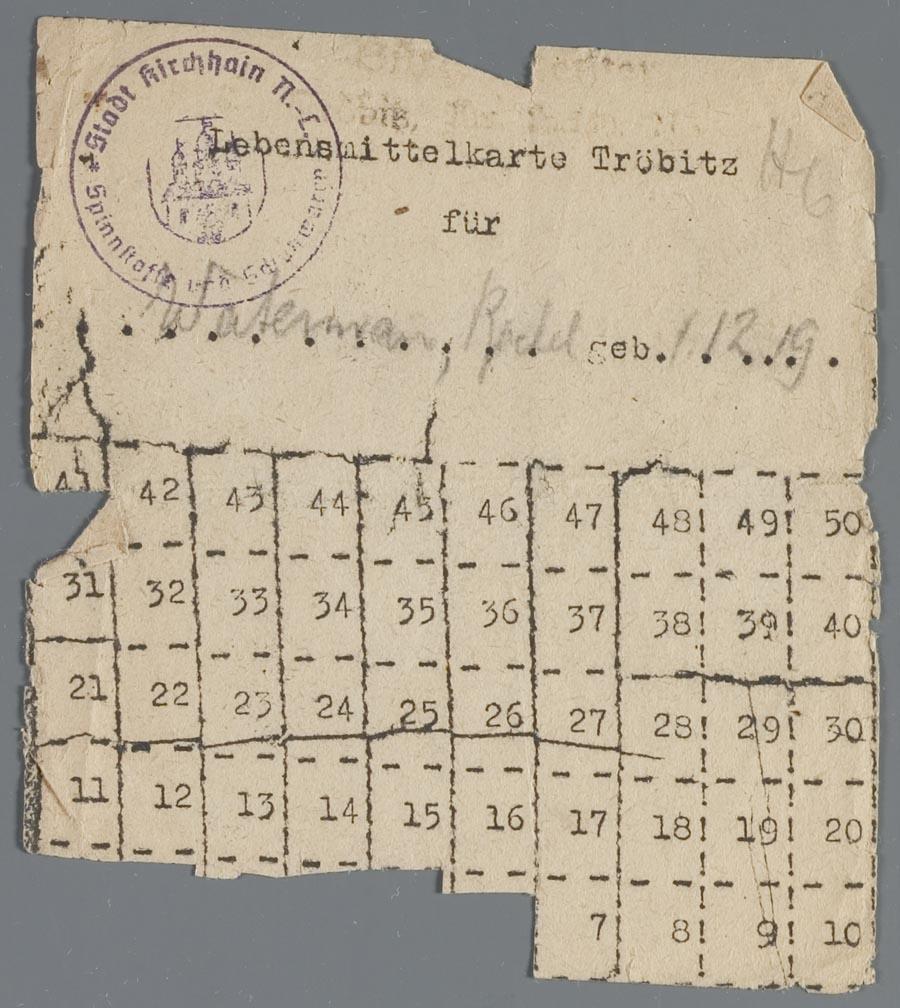 * Stadt Kirchhain N.-L. * Spinnstoffe und Schuhwaren
Lebensmittelkarte Tröbitz
für
Waterman, geb. 1.12.19
41 42 43 44 45 46 47 48 49 50
31 32 33 34 35 36 37 38 39 40
21 22 23 24 25 26 27 28 29 30
11 12 13 14 15 16 17 18 19 20
7 8 9 10